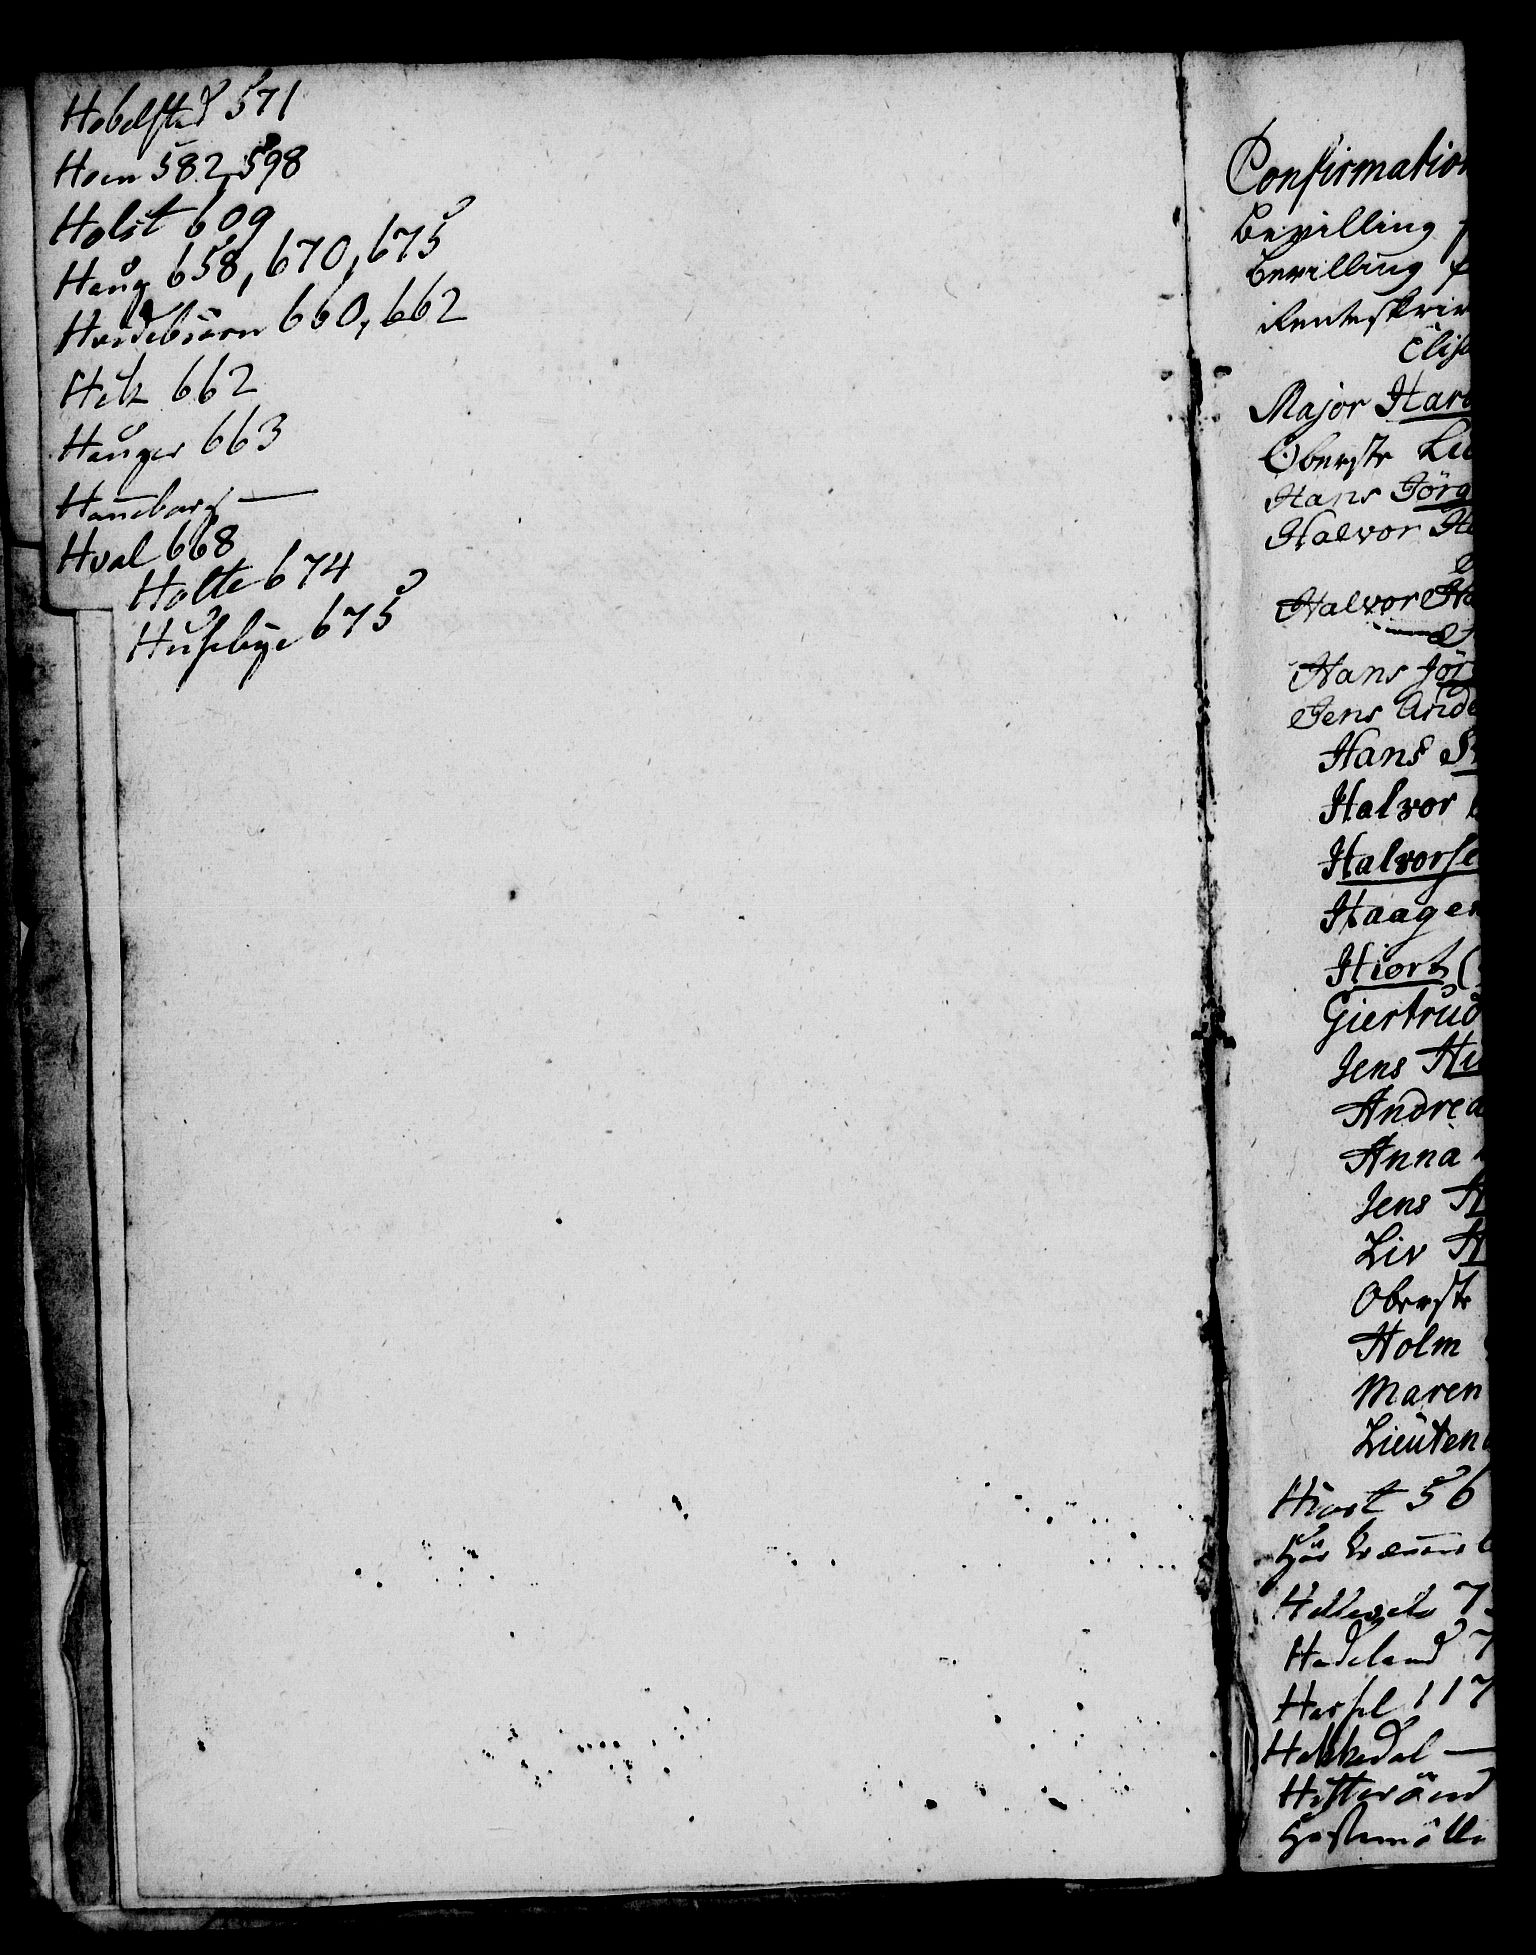 Hobelstad 571
Hoen 582, 598
Holst 609
Haug 658, 670, 675
Hvidebiörn 660, 662
Hetz 662
Hauger 663
Hanneborg —
Hval 668
Holte 674
Husebye 675
Confirmation
Bevilling f
Bevilling f
Renteskriv
Elisa
Major Hard
Oberste Lie
Hans Jörg
Halvor Ha
Halvor Ha
Hans Jör
Jens Ande
Hans
Halvor
Halvorse
Haagen
Hiort (
Giertrud
Jens Hu
Andrea
Anna
Jens H
Liv H
Oberste
Holm
Maren
Lieuten
Hiort 56
Hellesöe 7
Hadeland 7
Hassel 117
Hakkedal —
Hitteröen